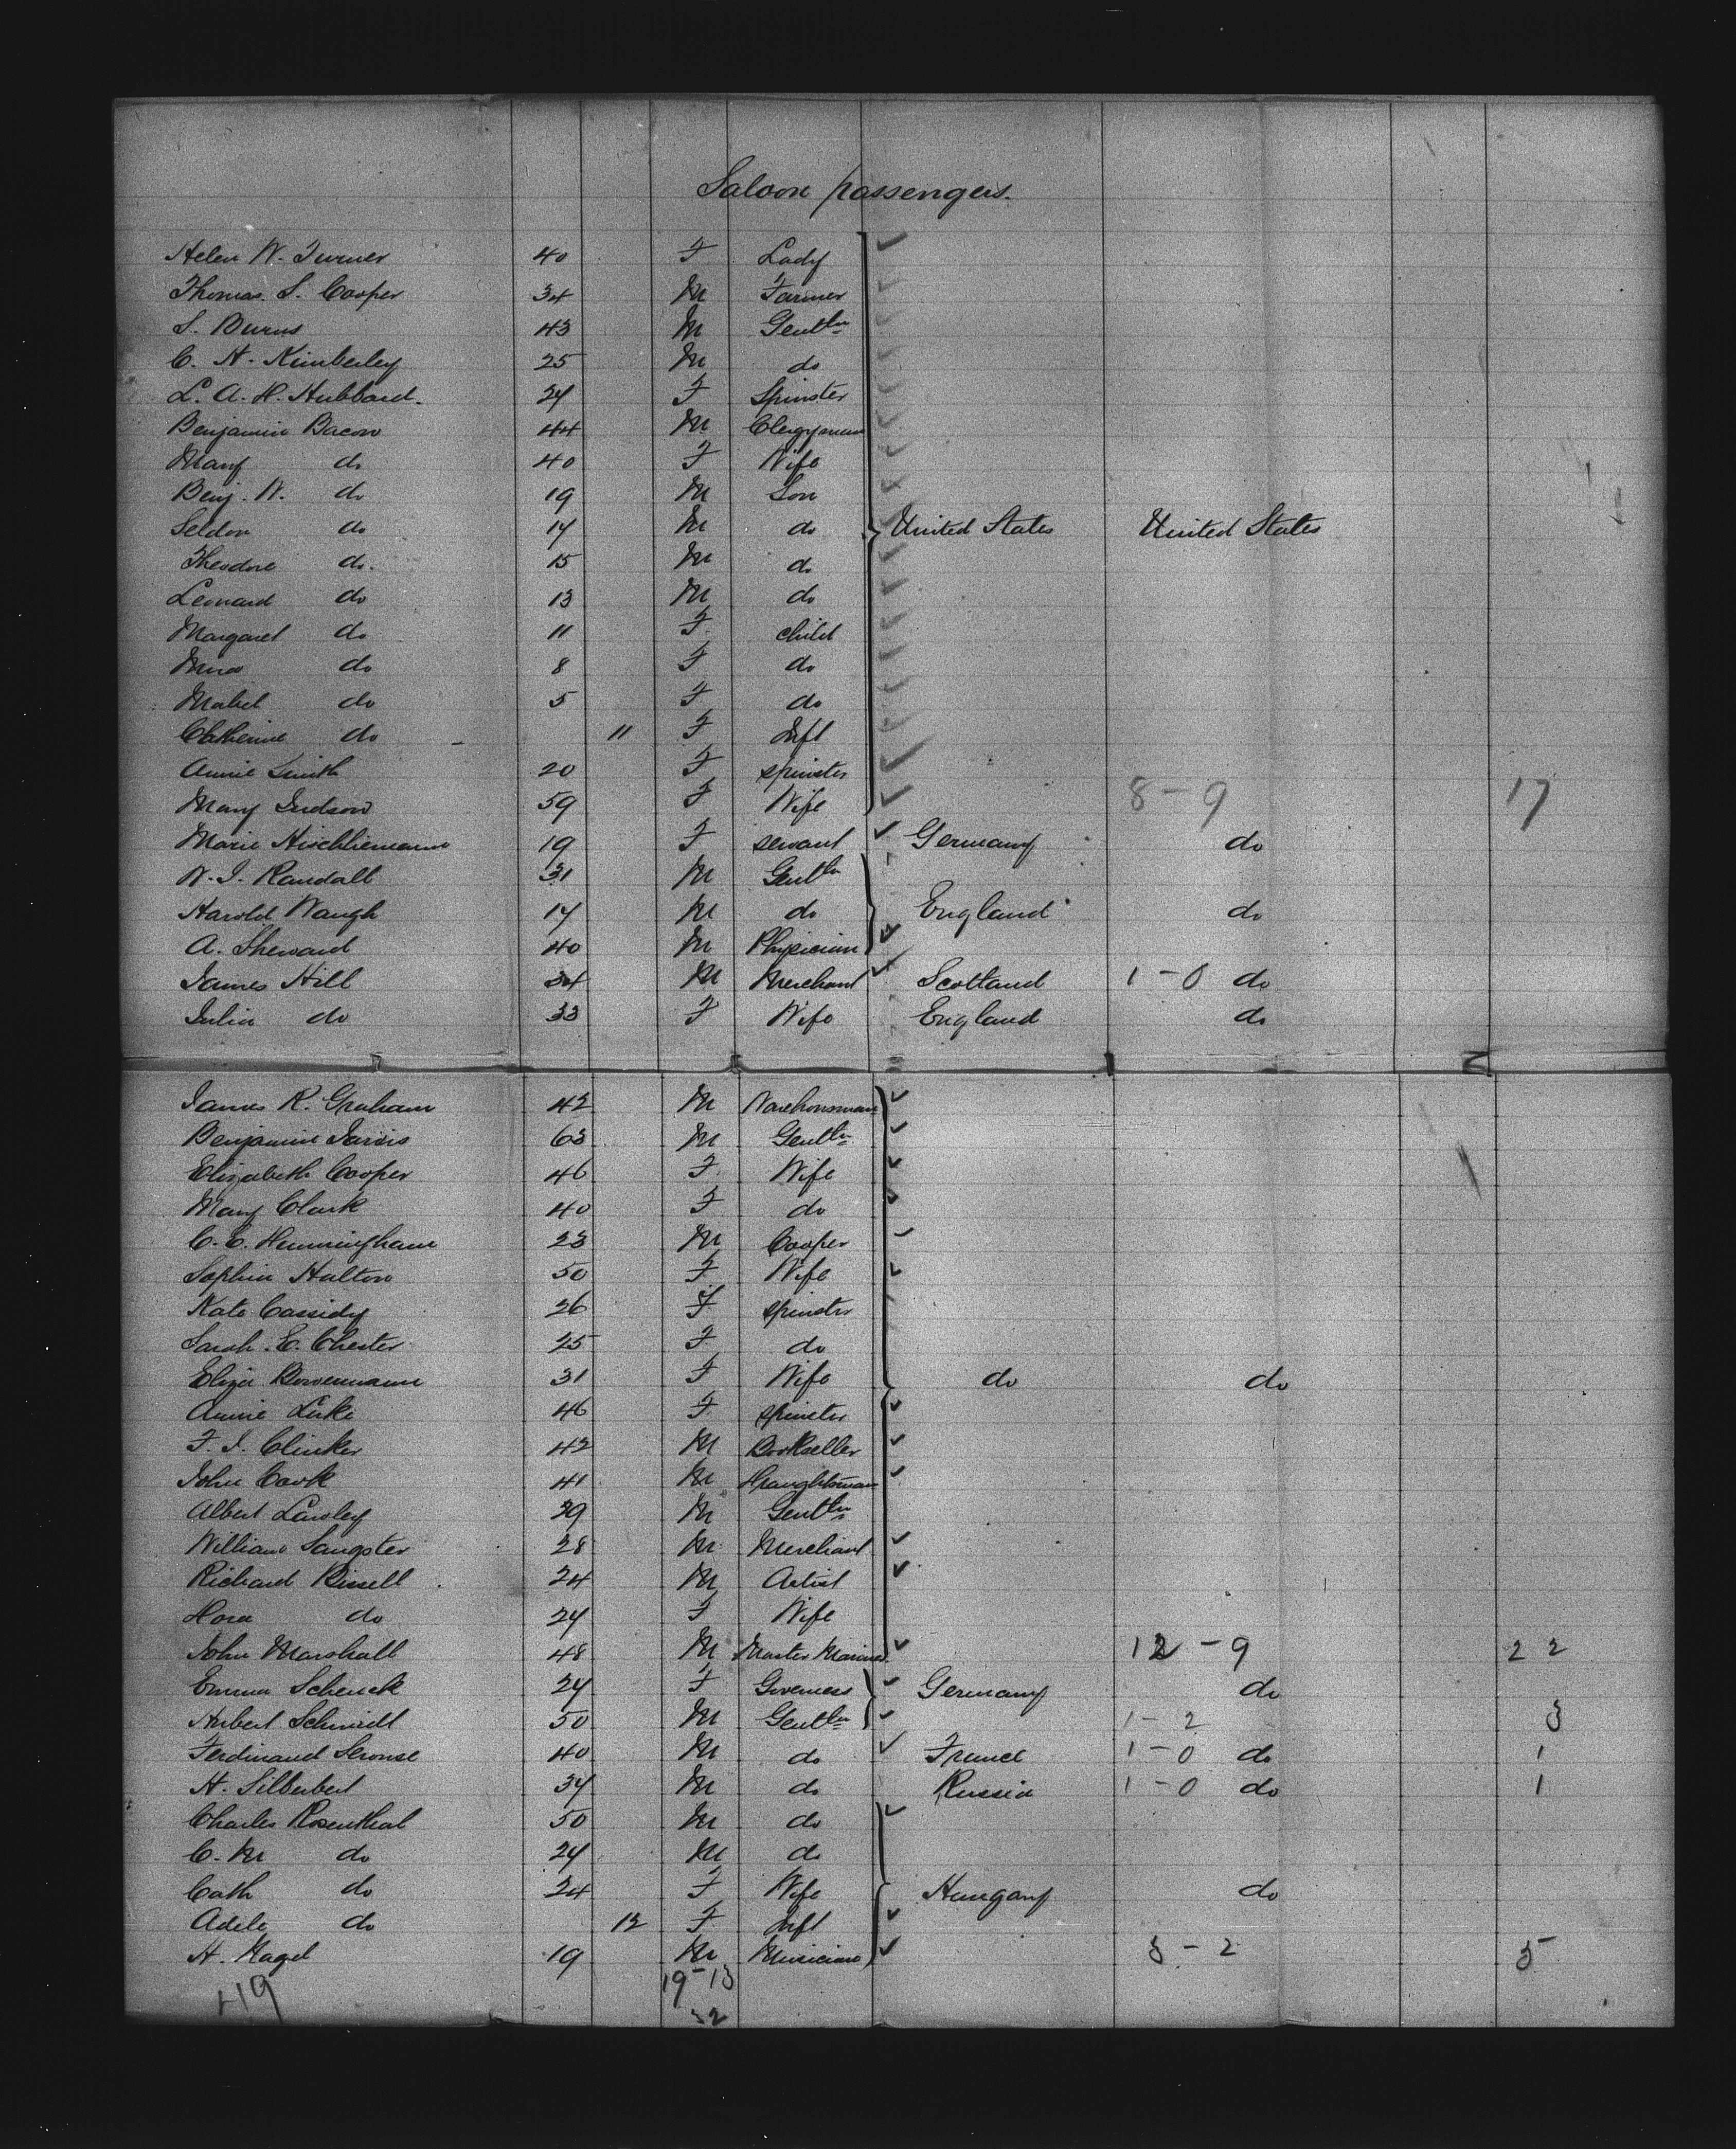 Saloon passengers.
Helen W. Turner 40 F Lady
Thomas S. Cooper 34 M Farmer
S. Burns 43 M Gentln
C. H. Kimberley 25 M do
L. A. H. Hubbard. 24 F Spinster
Benjamin Bacon 44 M Clergyman
Mary do 40 F Wife
Benj. W. do 19 M Son
Seldon do 17 M do United States United States
Theodore do. 15 M do
Leonard do 13 M do
Margaret do 11 F child
do 8 F do
Mabel do 5 F do
Catherine do 11 F Inft
Annie Smith 20 F spinster
Mary Judson 59 F Wife 8-9 17
Marie 19 F servant Germany do
W. J. Randall 31 M Gentln
Harold Waugh 17 M do England do
A. Sheward 40 M Physician
James Hill 34 M Merchant Scotland 1-0 do
Julia do 33 F Wife England do
James R. Graham 42 M Warehousman
Benjamin Jarvis 63 M Gentln
Elizabeth Cooper 46 F Wife
Mary Clark 40 F do
C. E. Hunningham 23 M Cooper
Sophia Hulton 50 F Wife
Kate Cassidy 26 F spinster
Sarah. E. Chester 25 F do
Eliza 31 F Wife do do
Annie Luke 46 F spinster
F. J. Clinker 42 M Bookseller
John Cook 41 M Draughtsman
Albert 29 M Gentln
William Sangster 28 M Merchant
Richard Bissell 24 M Artist
do 24 F Wife
John Marshall 48 M Master Mariner 12-9 22
Emma Schenck 24 F Governess Germany do
Hubert Schmidt 50 M Gentln 1-2 3
Ferdinand 40 M do France 1-0 do 1
H. Silberbert 34 M do Russia 1-0 do 1
Charles Rosenthal 50 M do
C. M do 24 M do
Cath do 24 F Wife Hungary do
Adele do 12 F Inft
H. Nagel 19 M Musician 3-2 5
49 19-13
32